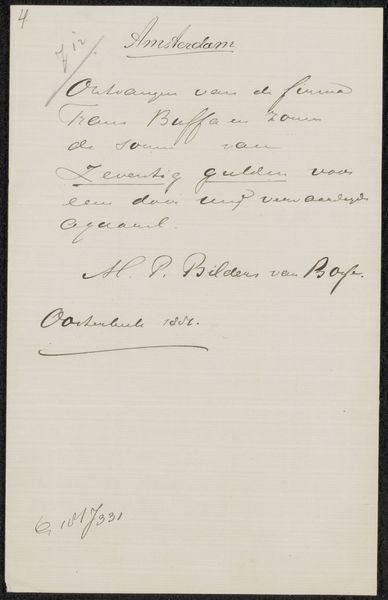 4
Amsterdam
Ontvangen van de firma
Frans Buffa en Zonen
de som van
Zeventig gulden voor
een door mij vervaardigde
aquarel.
M. P. Bilders van Bosse.
Oosterbeek 1881.